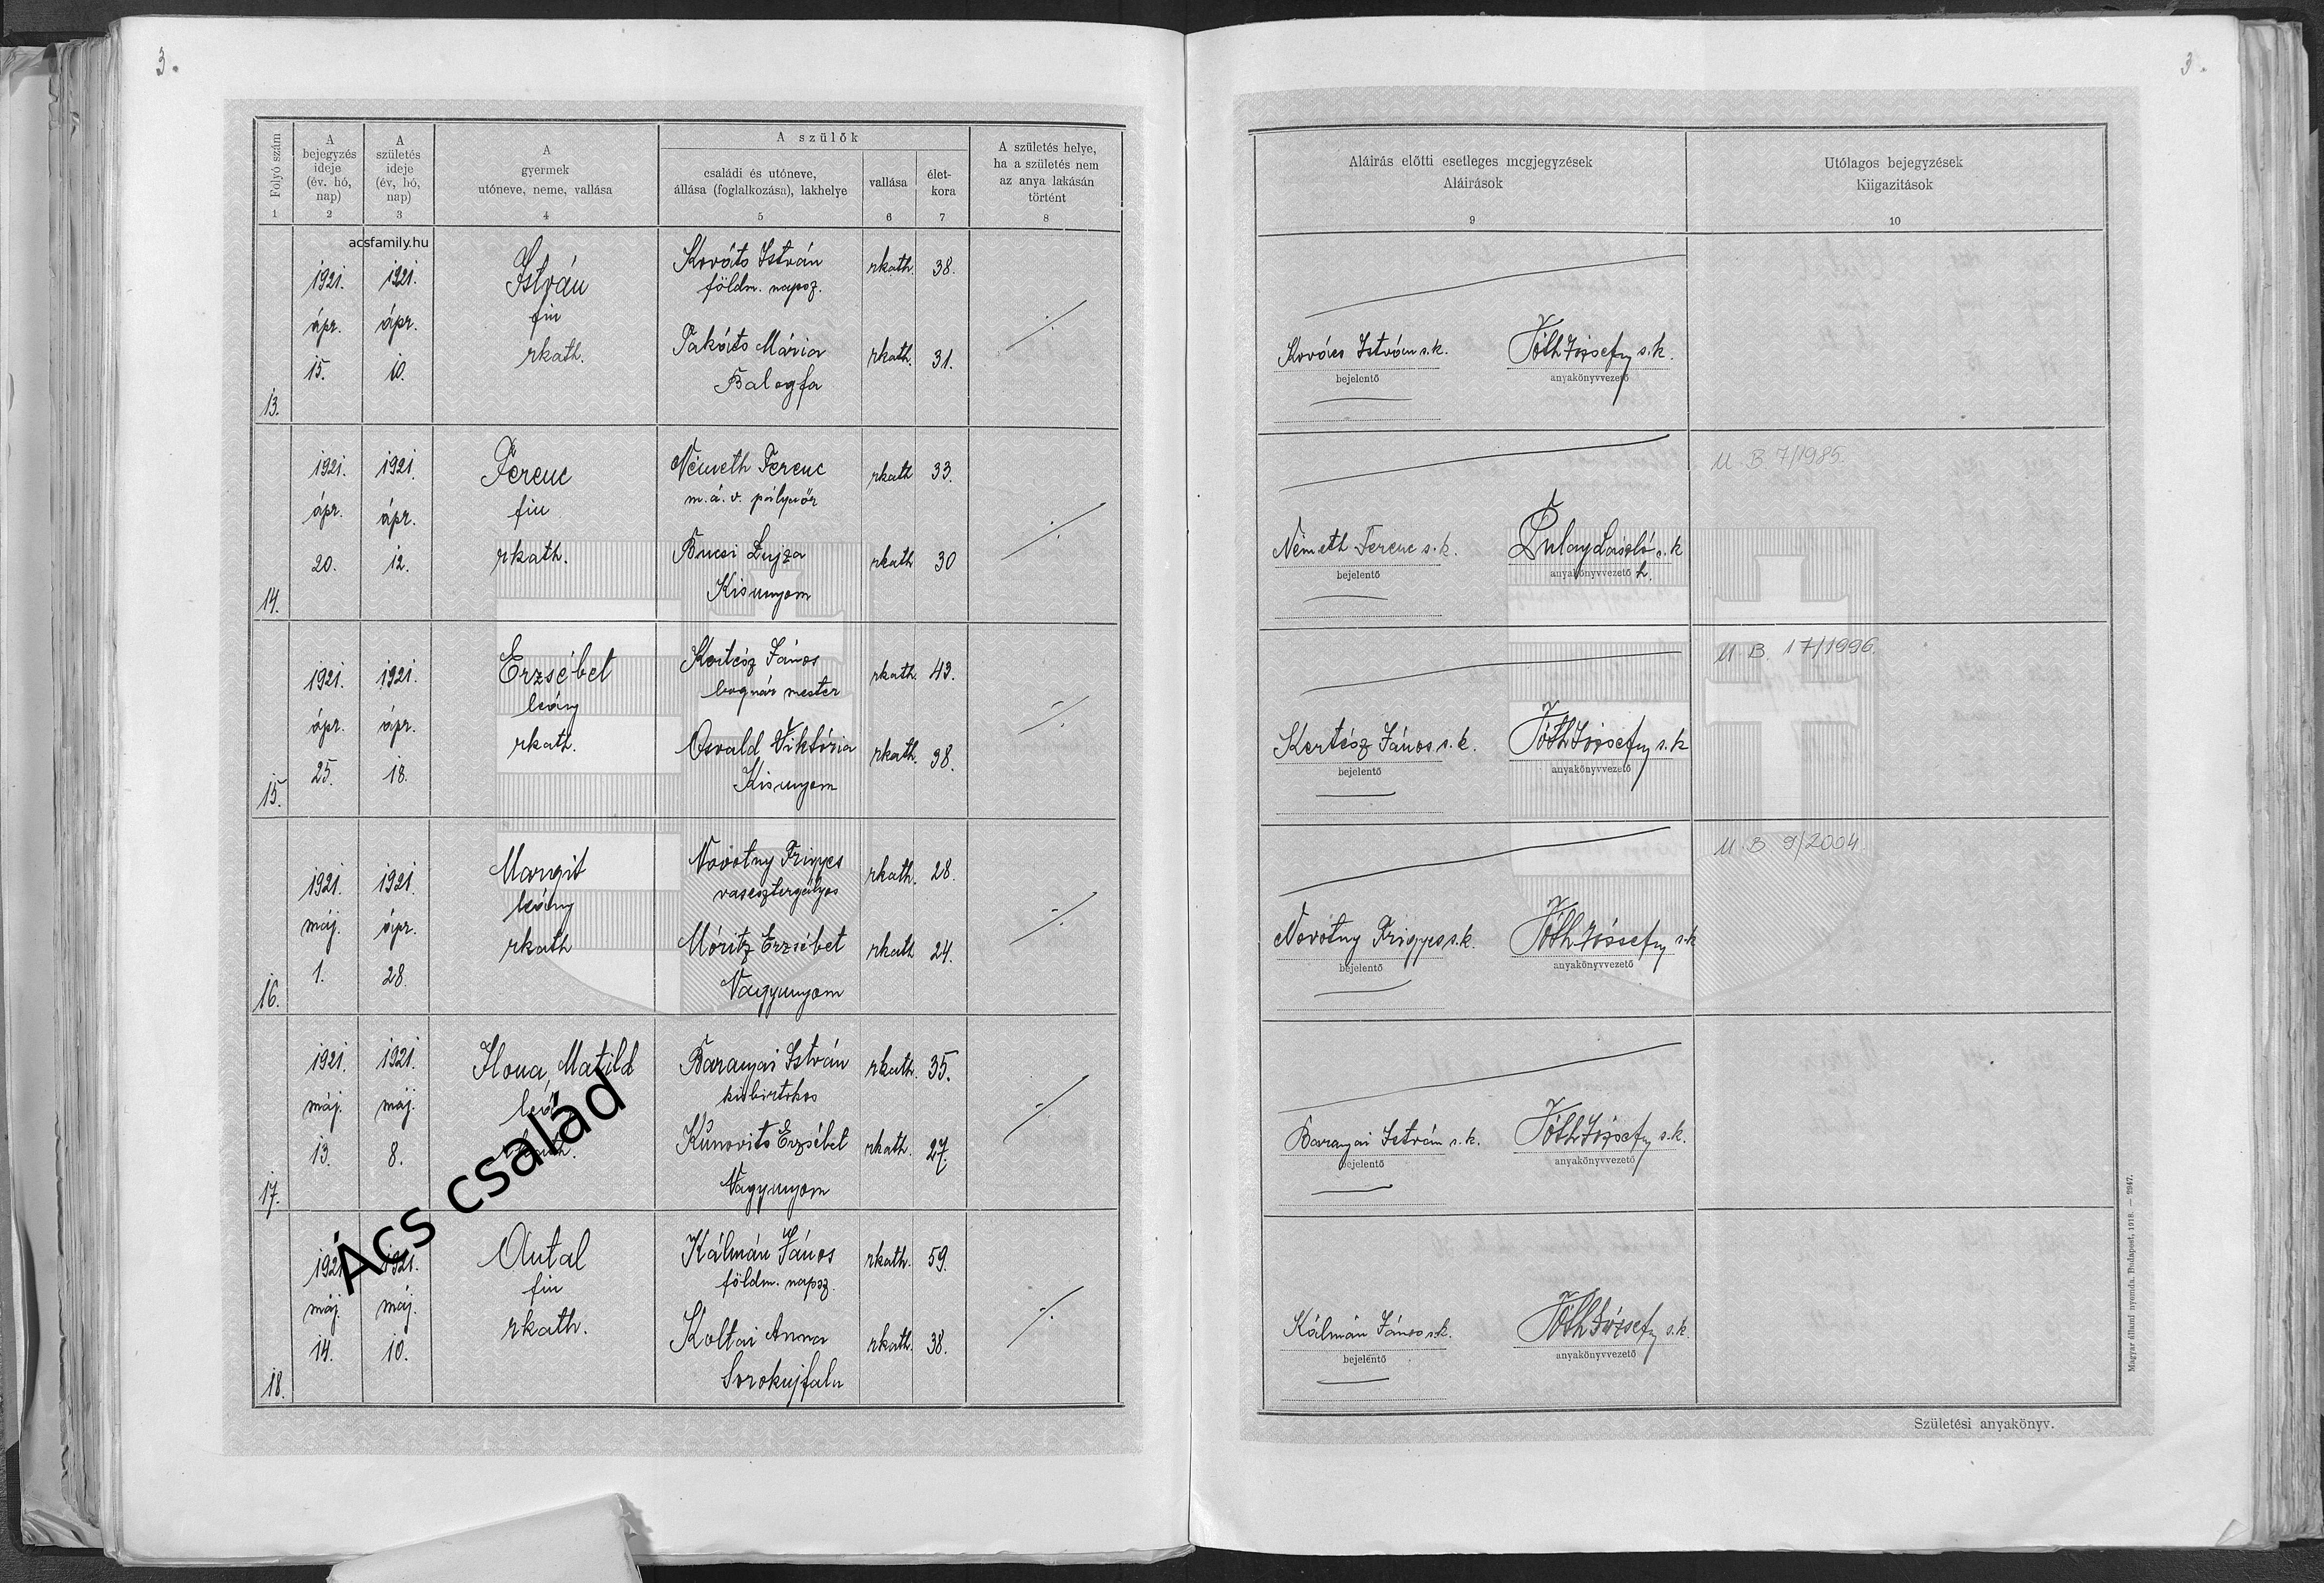 3.
3.
Folyó szám
1
A
bejegyzés
ideje
(év, hó,
nap)
2
A
születés
ideje
(év, hó,
nap)
3
A
gyermek
utóneve, neme, vallása
4
A szülők
családi és utóneve,
állása (foglalkozása), lakhelye
5
vallása
6
élet-
kora
7
A születés helye,
ha a születés nem
az anya lakásán
történt
8
Aláírás előtti esetleges megjegyzések
Aláírások
9
Utólagos bejegyzések
Kiigazítások
10
acsfamily.hu
13.
1921.
ápr.
15.
1921.
ápr.
10.
István
fiu
rkath.
Kováts István
földm. napsz.
Takáts Mária
Balogfa
rkath. 38.
rkath. 31.
Kovács István s.k.
bejelentő
Tóth József s.k.
anyakönyvvezető
14.
1921.
ápr.
20.
1921.
ápr.
12.
Ferenc
fiu
rkath.
Németh Ferenc
m. á. v. pályaőr
Bucsi Lujza
Kisunyom
rkath 33.
rkath 30
Németh Ferenc s.k.
bejelentő
László s.k
anyakönyvvezető h.
M. B. 7/1985.
15.
1921.
ápr.
25.
1921.
ápr.
18.
Erzsébet
leány
rkath.
Kertész János
bognár mester
Osvald Viktória
Kisunyom
rkath. 43.
rkath. 38.
Kertész János s.k.
bejelentő
Tóth József s.k
anyakönyvvezető
M. B. 17/1996.
16.
1921.
máj.
1.
1921.
ápr.
28.
Margit
leány
rkath
Novotny Frigyes
vasesztergályos
Móritz Erzsébet
Nagyunyom
rkath. 28.
rkath 24.
Novotny Frigyes s.k.
bejelentő
Tóth József s.k
anyakönyvvezető
M. B 9/2004
17.
1921.
máj.
13.
1921.
máj.
8.
Ilona, Matild
Baranyai István
kisbirtokos
Kunovits Erzsébet
Nagyunyom
rkath. 35.
rkath. 27.
Baranyai István s.k.
bejelentő
Tóth József s.k.
anyakönyvvezető
Ács család
18.
1921.
máj.
14.
1921.
máj.
10.
Antal
fiu
rkath.
Kálmán János
földm. napsz.
Koltai Anna
Sorokujfalu
rkath. 59.
rkath. 38.
Kálmán János s.k.
bejelentő
Tóth József s.k.
anyakönyvvezető
Magyar állami nyomda. Budapest, 1918. — 2947.
Születési anyakönyv.